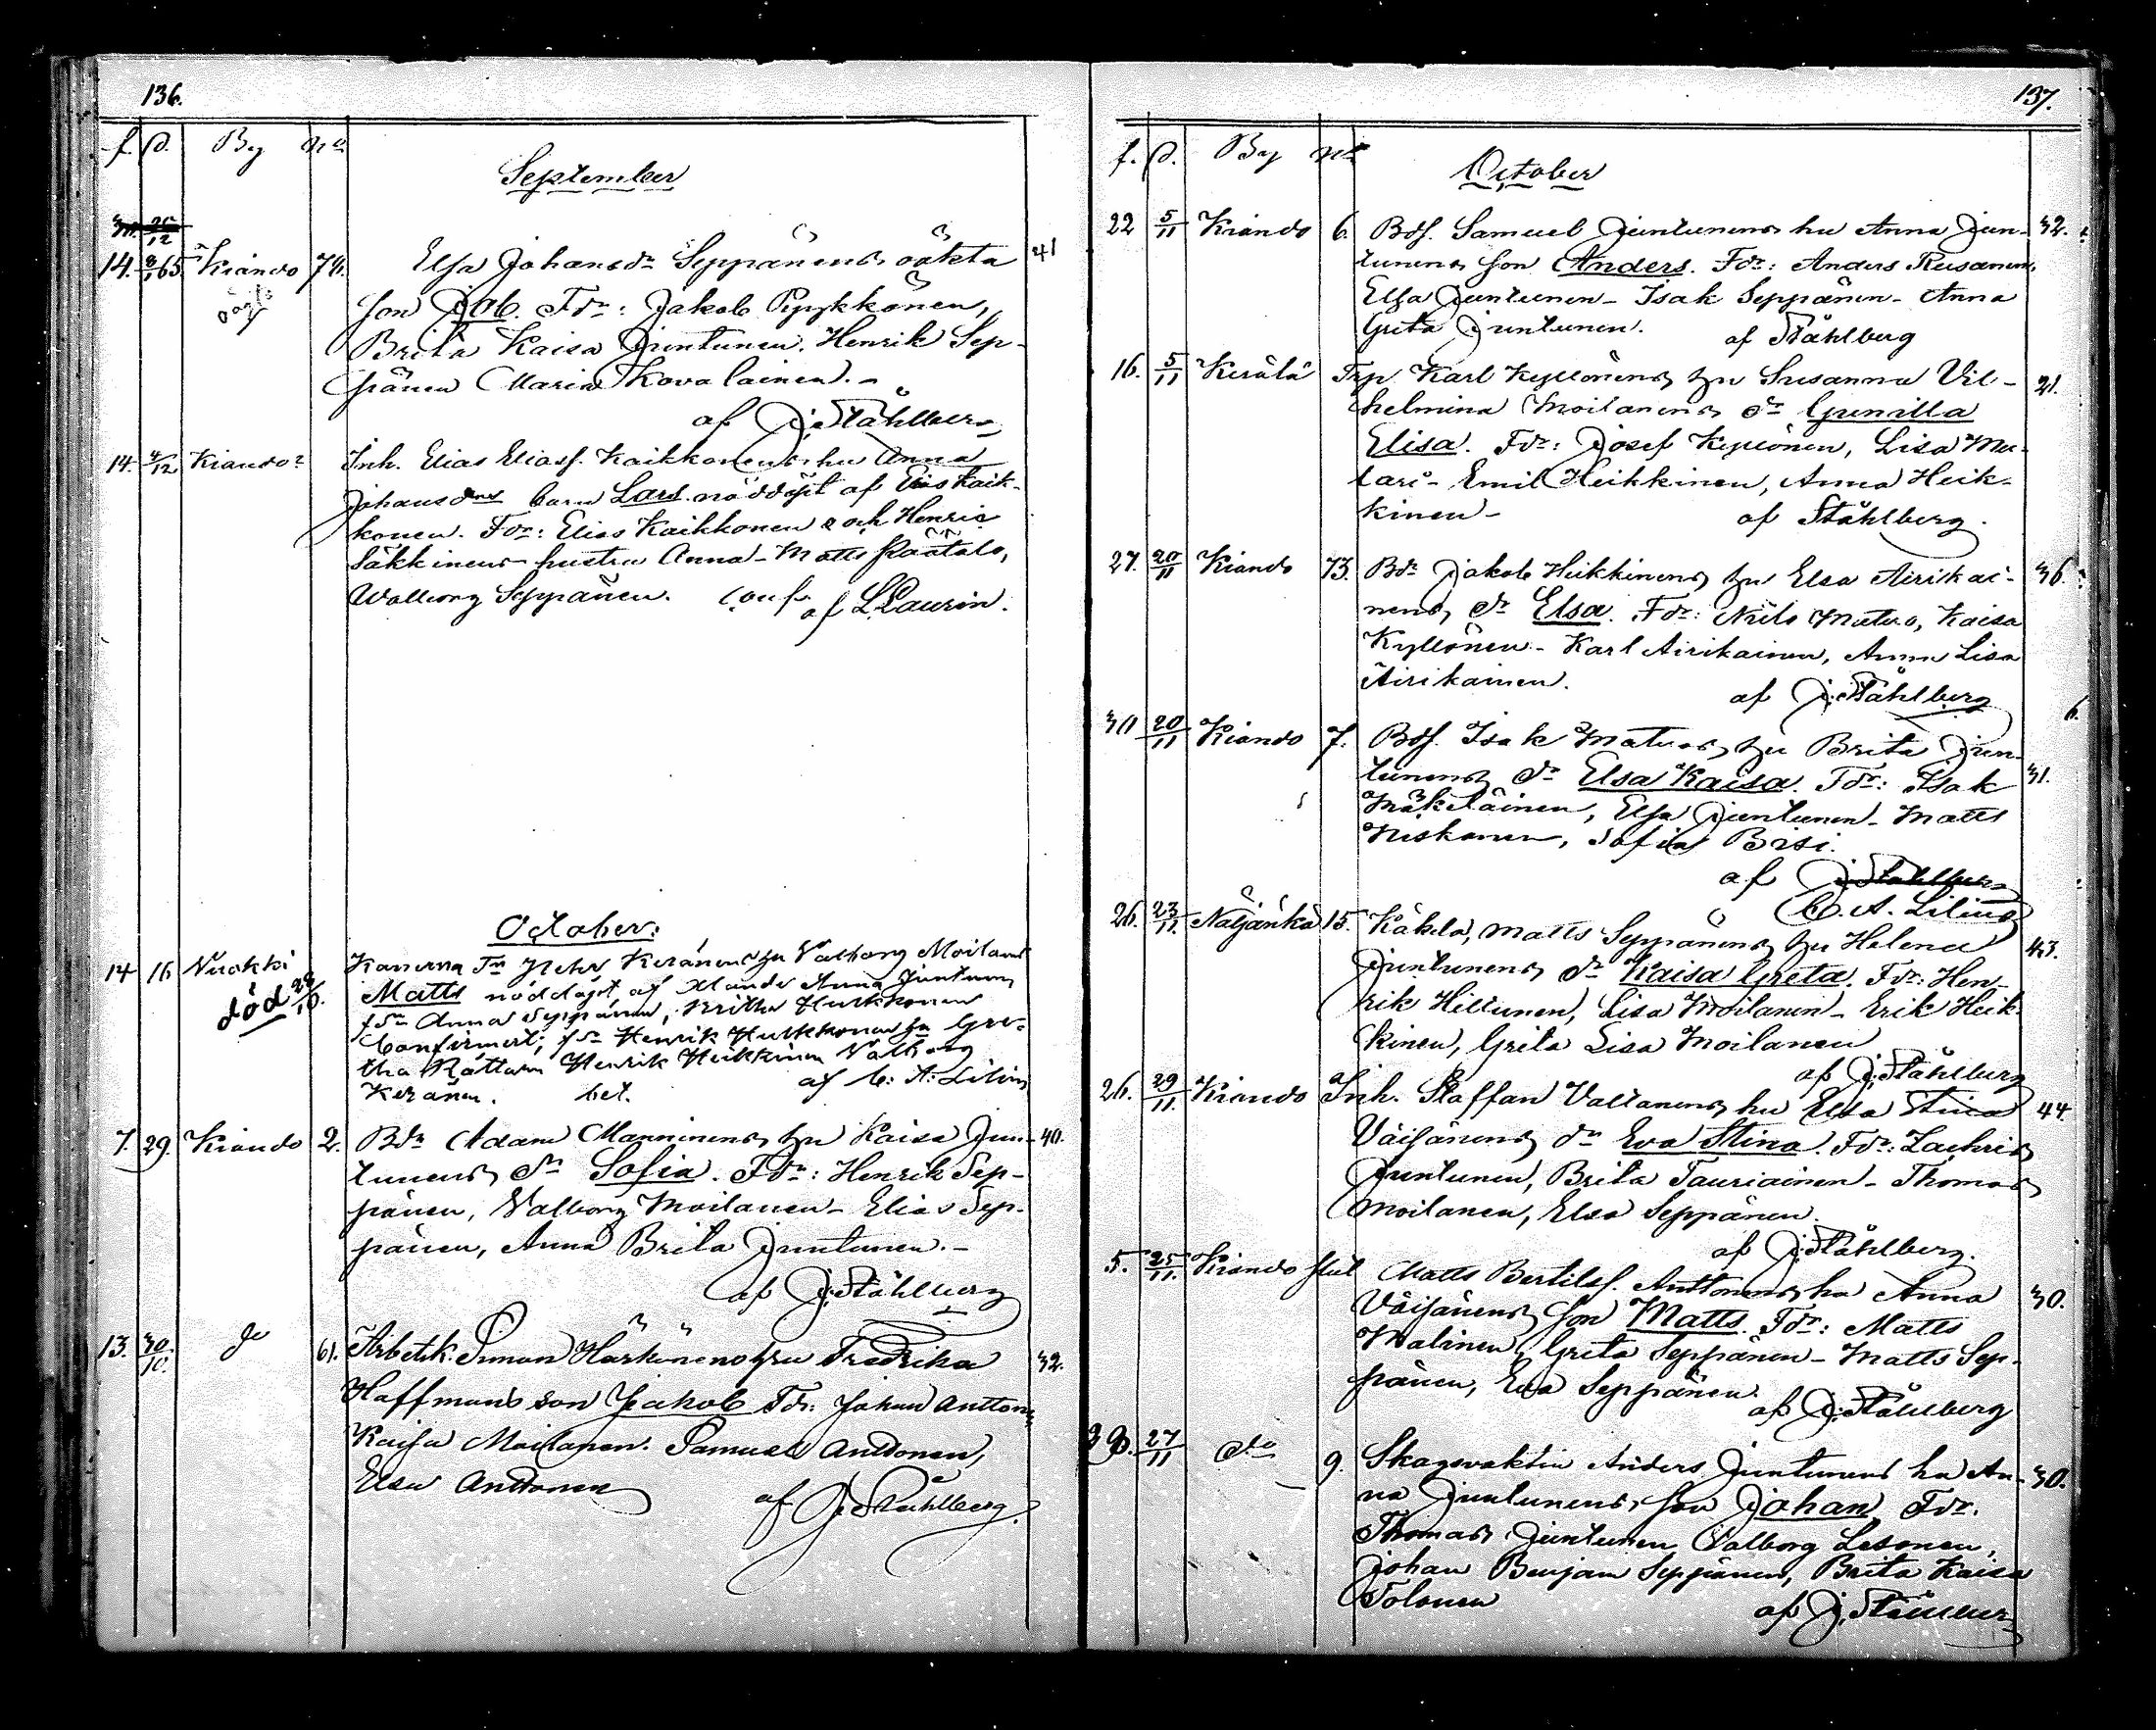 136.
f. d. By No
September
30. 26/12
14. 8/1 65 Kiando 74. Elsa Johansdr Seppänens oäkta 41
oägt son Job. Fdr: Jakob Pyykkönen,
Brita Kaisa Juntunen. Henrik Sep-
pänen Maria Kovalainen.-
af J. Ståhlberg
14. 4/12 Kiando Inh. Elias Eliass. Kaikkonens hu Anna
Johansdrs barn Lars nöddöpt af Elias Kaik-
konen. Fdr: Elias Kaikkonen och Henric
Säkkinens hustru Anna - Matts Räätälö,
Walborg Seppänen. Conf. af L. Laurin.
October.
14 16 Nuokki Kanerna Tp Petter Keränens hu Valborg Moilans
död 29/10. Matts nöddöpt af Anna Juntunen
fdr Anna Seppänen, Britha Hurkkonen
Confirmert; fdr Henrik Hurkkonen hu Gre-
tha Rättärn Henrik Heikkinen Valborg
Keränen. bet. af C: A: Lilius
7. 29. Kiando 2. Bdr Adam Manninens hu Kaisa Jun- 40.
tunens dr Sofia. Fdr: Henrik Sep-
pänen, Valborg Moilanen - Elias Sep-
pänen, Anna Brita Juntunen.-
af J. Ståhlberg
13. 30/10. do 61. Arbetsk. Simon Härkönens hu Fredrika 32.
Haffmans son Jakob Fdr: Johan Anttonen
Kaisa Moilanen. Samuel Anttonen,
Elsa Anttonen
af J. Ståhlberg.
137.
f. d. By No
October
22 5/11 Kiando 6. Bds. Samuel Juntunens hu Anna Jun- 32.
tunens son Anders. Fdr: Anders Kusanen,
Elsa Juntunen - Isak Seppänen - Anna
Greta Juntunen. af Ståhlberg
16. 5/11 Kerälä Trp Karl Kyllönens hu Susanna Vil- 21.
helmina Moilanens dr Gunilla
Elisa. Fdr: Josef Kyllönen, Lisa Mu-
tari - Emil Heikkinen, Anna Heik-
kinen - af Ståhlberg.
27. 20/11 Kiando 73. Bdr Jakob Heikkinens hu Elsa Airikai- 36.
nens dr Elsa. Fdr: Nils Matero, Kaisa
Kyllönen - Karl Airikainen, Anna Lisa
Airikainen. af J. Ståhlberg
6.
30 20/11 Kiando 7. Bds. Isak Materos hu Brita Jun-
tunens dr Elsa Kaisa. Fdr: Isak 31.
Mäkeläinen, Elsa Juntunen - Matts
Niskanen, Sofia Bisi.
af J. Ståhlberg
C. A. Lilius
26. 23/11. Näljänkä 15. Käkelä, Matts Seppänens hu Helena 43.
Juntunens dr Kaisa Greta. Fdr: Hen-
rik Hiltunen, Lisa Moilanen - Erik Heik-
kinen, Greta Lisa Moilanen
af J. Ståhlberg
26. 29/11. Kiando Inh. Staffan Valtanens hu Elsa Stina 44.
Väisänens dr Eva Stina. Fdr: Zachris
Juntunen, Brita Tauriainen - Thomas
Moilanen, Elsa Seppänen.
af J. Ståhlberg.
5. 25/11. Kiando Matts Bertils. Anttonens hu Anna 30.
Väisänens son Matts. Fdr: Matts
Malinen, Greta Seppänen - Matts Sep-
pänen, Eva Seppänen.
af J. Ståhlberg
27/11 dto 9. Skogsvaktin Anders Juntunens hu An- 30.
na Juntunens son Johan Fdr.
Thomas Juntunen Valborg Lesonen,
Johan Benjam Seppänen, Brita Kaisa
Tolonen
af J. Ståhlberg